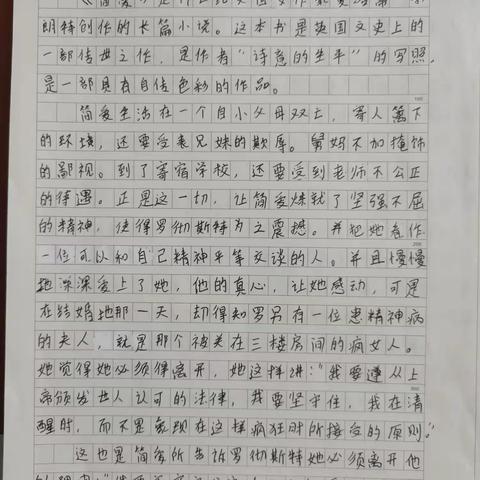 朗特创作的长篇小说。这本书是英国文史上的
一部传世之作，是作者“诗意的生平”的写照，
是一部具有自传色彩的作品。
简爱生活在一个自小父母双亡，寄人篱下
的环境，还要受表兄妹的欺辱。舅妈不加掩饰
的鄙视。到了寄宿学校，还要受到老师不公正
的待遇。正是这一切，让简爱炼就了坚强不屈
的精神，使得罗彻斯特为之震撼。并把她看作
一位可以和自己精神平等交谈的人。并且慢慢
地深深爱上了她，他的真心，让她感动，可是
在结婚地那一天，却得知罗另有一位患精神病
的夫人，就是那个被关在三楼房间的疯女人。
她觉得她必须得离开，她这样讲：“我要遵从上
帝颁发世人认可的法律，我要坚守住，我在清
醒时，而不是象现在这样疯狂时所接受的原则”
这也是简爱所告诉罗彻斯特她必须离开他